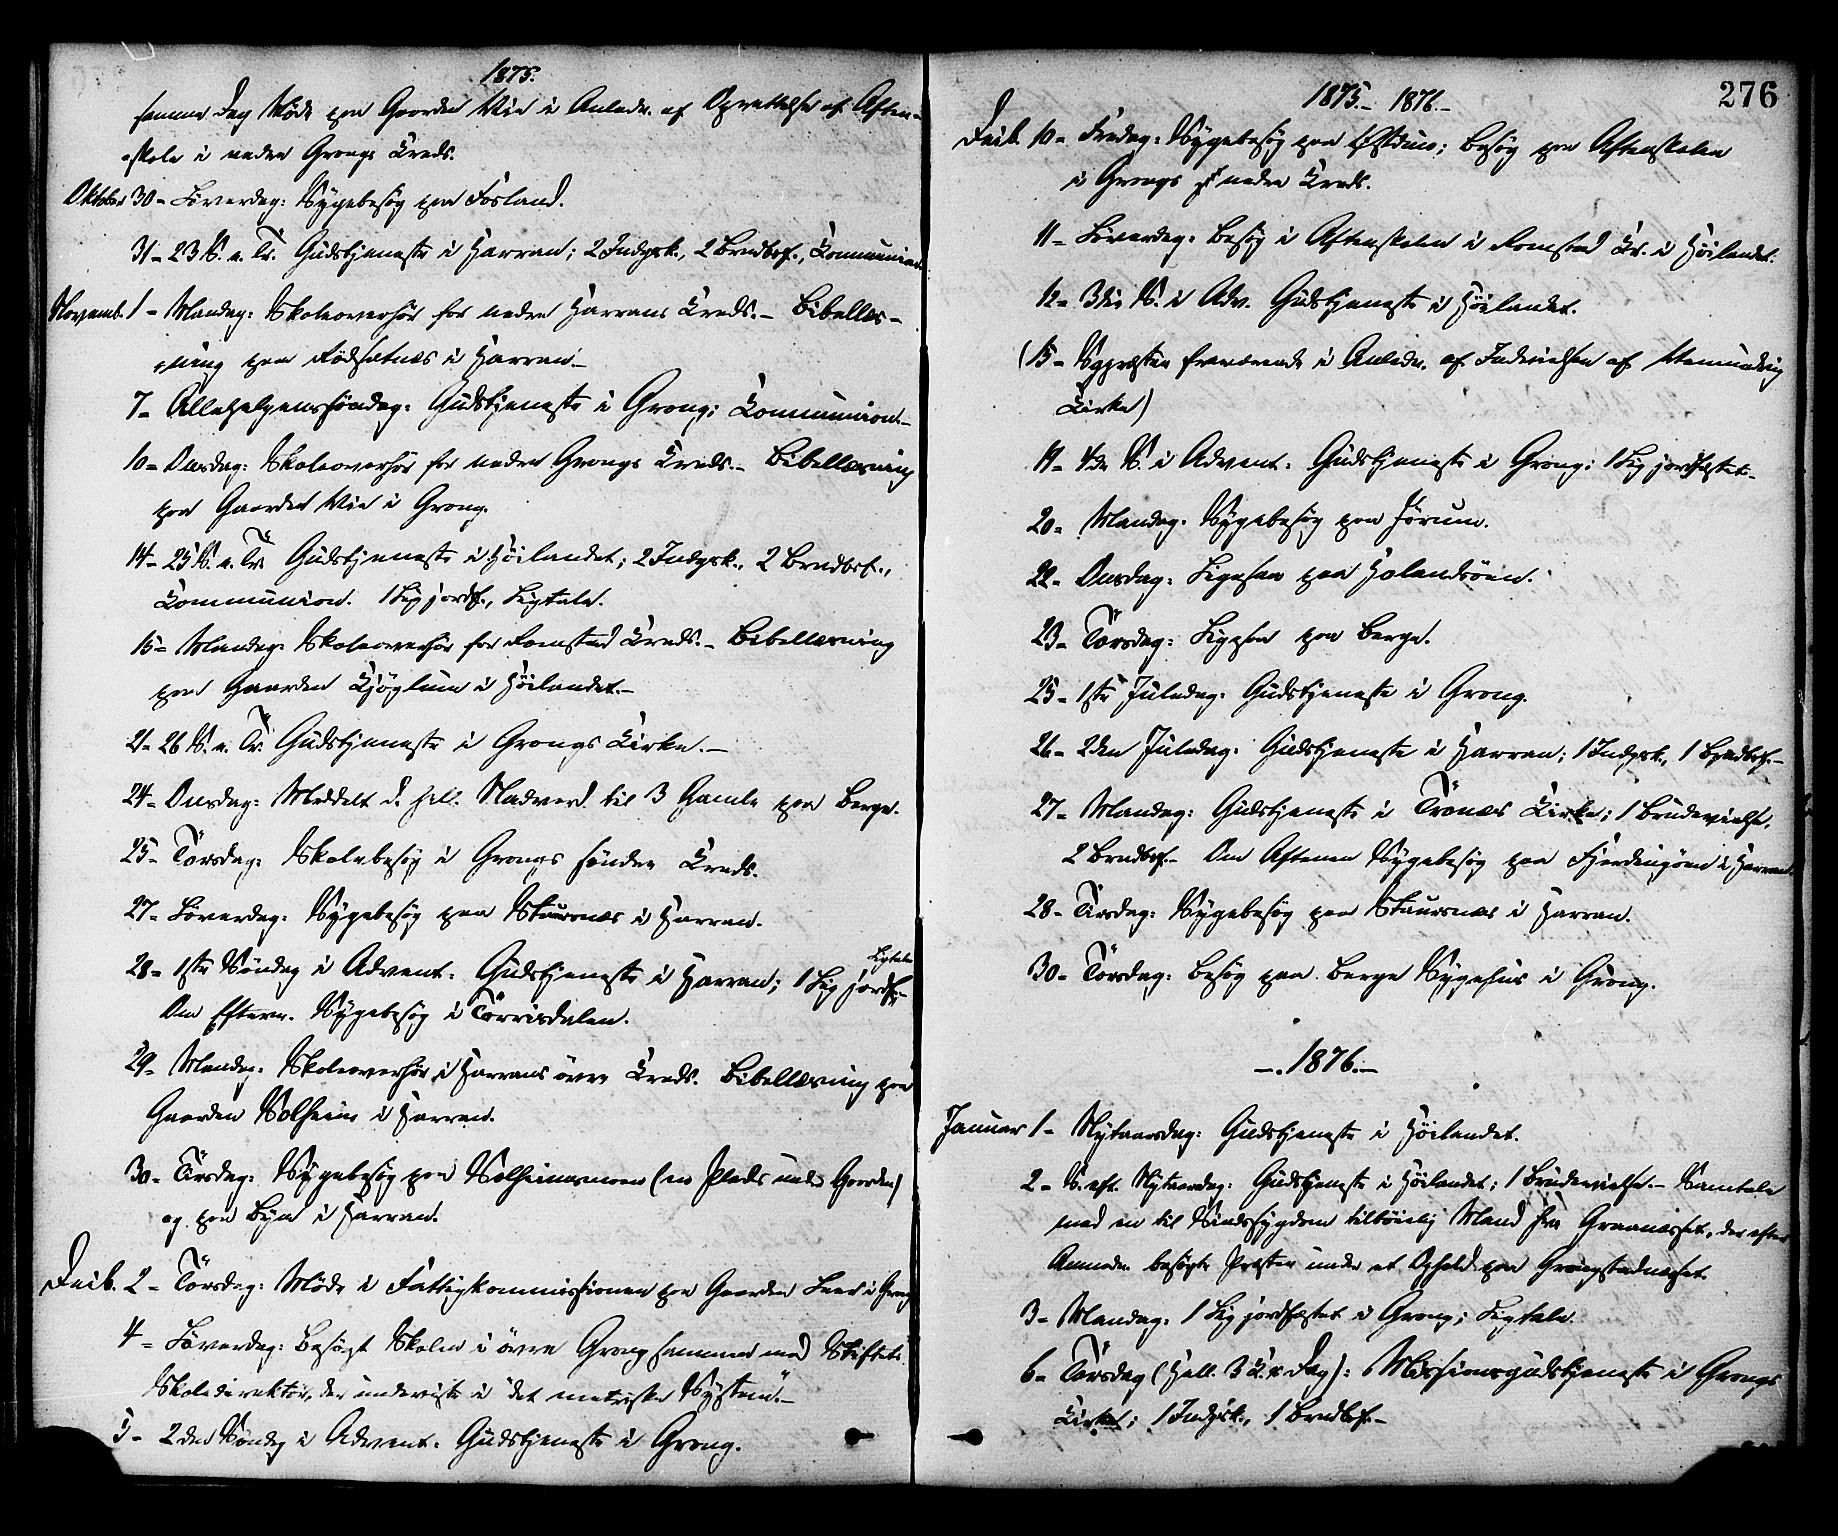 1875.
samme Dag Møde paa Gaarden Vie i Anledn. af Oprettelse af Aften-
skole i nedre Grongs Kreds.
Oktober 30 - Löverdag: Sygebesög paa Fosland.
31 - 23 S. e. Tr. Gudstjeneste i Harran; 2 Indgsk., 2 Brudbsf., Communion.
Novemb. 1 - Mandag: Skoleoverhör for nedre Harrans Kreds. - Bibellæs-
ning paa Rödsætnæs i Harran. -
7 - Allehelgenssöndag: Gudstjeneste i Grong; Communion. -
10 - Onsdag: Skoleoverhör for nedre Grongs Kreds. - Bibellæsning
paa Gaarden Vie i Grong.
14 - 25 S. e. Tr. Gudstjeneste i Höilandet; 2 Indgsk., 2 Brudbsf.,
Communion. 1 Lig jordf., Ligtale.
15 - Mandag: Skoleoverhör for Romstad Kreds. - Bibellæsning
paa Gaarden Kjöglum i Höilandet. -
21 - 26 S. e. Tr. Gudstjeneste i Grongs Kirke. -
24 - Onsdag: Meddelt d. hell. Nadverd til 3 Gamle paa Berge.
25 - Torsdag: Skolebesög i Grongs söndre Kreds.
27 - Löverdag: Sygebesög paa Staursnæs i Harran.
28 - 1ste Söndag i Advent: Gudstjeneste i Harran; 1 Lig jordf.,
Ligtale
Om Efterm. Sygebesög i Torrisdalen.
29 - Mandag: Skoleoverhör i Harrans övre Kreds. Bibellæsning paa
Gaarden Solheim i Harran.
30 - Tirsdag: Sygebesög paa Solheimsmoen (en Plads under Gaarden)
og paa Byn i Harran.
Decb. 2 - Torsdag: Möde i Fattigkommissionen paa Gaarden i Grong
4 - Löverdag: Besögt Skolen i övre Grong sammen med Stiftets
Skoledirektör, der underviste i det metriske System. -
5 - 2den Söndag i Advent: Gudstjeneste i Grong.
1875. - 1876. -
276
Decb. 10 - Fredag: Sygebesög paa; Besög paa Aftenskolen
i Grongs nedre Kreds.
11 - Löverdag: Besög i Aftenskolen i Romstad Kr. i Höilandet.
12 - 3die S. i Adv. Gudstjeneste i Höilandet.
(15 - Sgpræsten fraværende i Anledn. af Indvielsen af Vemundvig
Kirke)
19 - 4de S. i Advent: Gudstjeneste i Grong; 1 Lig jordfæstet. -
20 - Mandag: Sygebesög paa Jörum.
22 - Onsdag: Ligesaa paa Holandsöen.
23 - Torsdag: Ligesaa paa Berge.
25 - 1ste Juledag: Gudstjeneste i Grong.
26 - 2den Juledag: Gudstjeneste i Harran; 1 Indgsk., 1 Brudbsf. -
27 - Mandag: Gudstjeneste i Trones Kirke; 1 Brudevielse,
2 Brudbsf. - Om Aftenen Sygebesög paa Fjerdingöen i Harran.
28 - Tirsdag: Sygebesög paa Staursnæs i Harran.
30 - Torsdag: Besög paa Berge Sygehus i Grong.
- 1876. -
Januar 1 - Nytaarsdag: Gudstjeneste i Höilandet.
2 - S. eft. Nytaarsdag: Gudstjeneste i Höilandet; 1 Brudevielse. - Samtale
med en til Sindssygdom tilböielig Mand fra Graanæsset, der efter
Anmodn. besögte Præsten under et Ophold paa Grongstadnæsset.
3 - Mandag: 1 Lig jordfæstet i Grong; Ligtale.
6 - Torsdag (Hell. 3 K. r Dag): Missionsgudstjeneste i Grongs
Kirke; 1 Indgsk., 1 Brudbsf. -